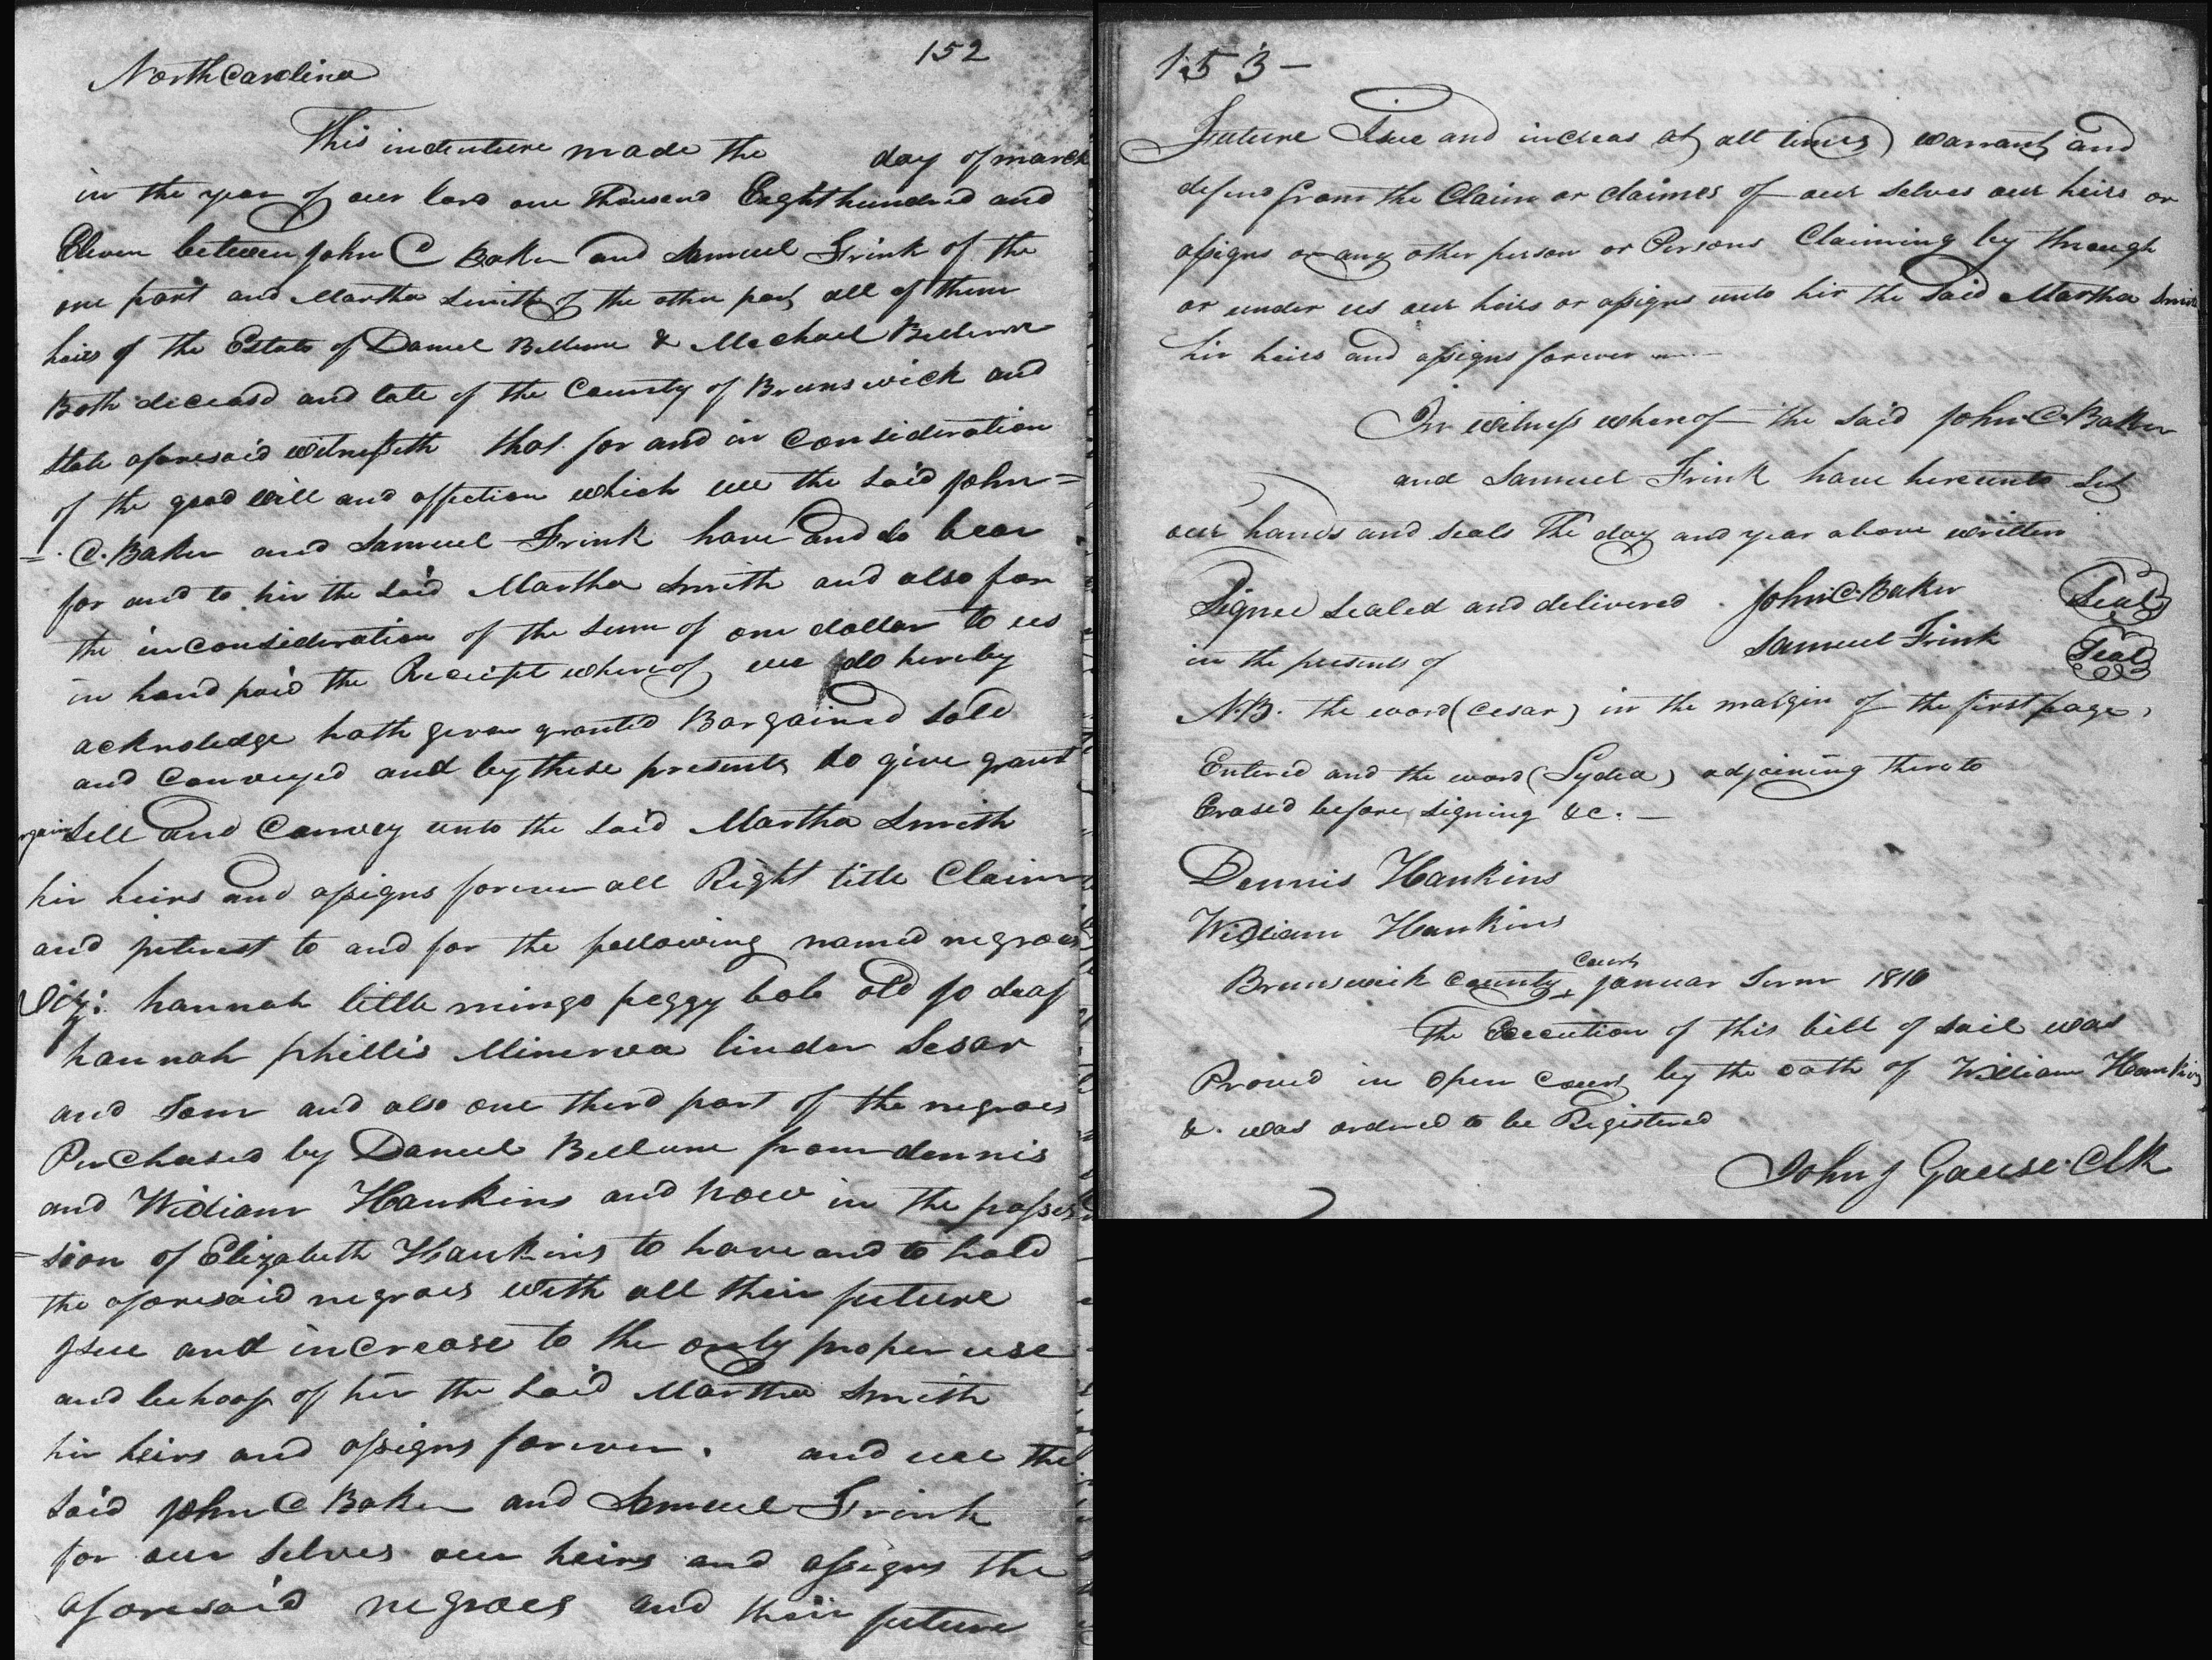 152
North Carolina
This indenture made the day of march
in the year of our lord one Thousand Eight hundred and
Eleven between John C Baker and Samuel Frink of the
one part and Martha Smith of the other part all of them
heirs of the Estate of Daniel Bellune & Mechael Bellune
Both deceasd and late of the County of Brunswick and
State aforesaid witnesseth that for and in Consideration
of the good will and affection which we the said John =
= C. Baker and Samuel Frink have and do bear
for and to hir the said Martha Smith and also for
the in consideration of the sum of one dollar to us
in hand paid the Receipt whereof we do hereby
acknoledge hath given granted Bargained sold
and Conveyed and by these presents do give grant
sell and Convey unto the said Martha Smith
hir heirs and assigns forever all Right title Claim
and interest to and for the following named negroes
Viz: hannah little mingo peggy bob old jo deaf
hannah phillis Minerva linder Sesar
and Tom and also one third part of the negroes
Purchased by Daniel Bellune from dennis
and William Hankins and now in the posses
= sion of Elizabeth Hankins to have and to hold
the aforesaid negroes with all their future
Issue and increase to the only proper use
and behoof of hir the said Martha Smith
hir heirs and assigns forever. and we the
said John C Baker and Samuel Frink
for our selves our heirs and assigns the
aforesaid negroes and their future
153 -
Future Isue and increas at all times warrant and
defend from the Claim or claimes of our selves our heirs or
assigns or any other person or Persons Claiming by through
or under us our heirs or assigns unto hir the said Martha Smith
hir heirs and assigns forever
In witness whereof the said John C. Baker
and Samuel Frink have hereunto set
our hands and seals The day and year above written
Signed sealed and delivered. John C. Baker Seal
in the presents of Samuel Frink Seal
N.B. the word (cesar) in the margin of the first page,
Entered and the word (Lydia) adjoining thereto
Erased before signing &c. -
Dennis Hankins
William Hankins
Brunswick County Court Januar Term 1816
The Execution of this bill of sail was
Proved in open Court by the oath of William Hankins
&. was ordered to be Registered
John J Gause. Clk